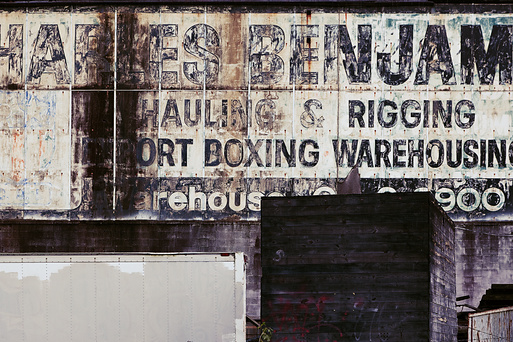 HARLES BENJAM
HAULING & RIGGING
ORT BOXING WAREHOUSING
rehous 900